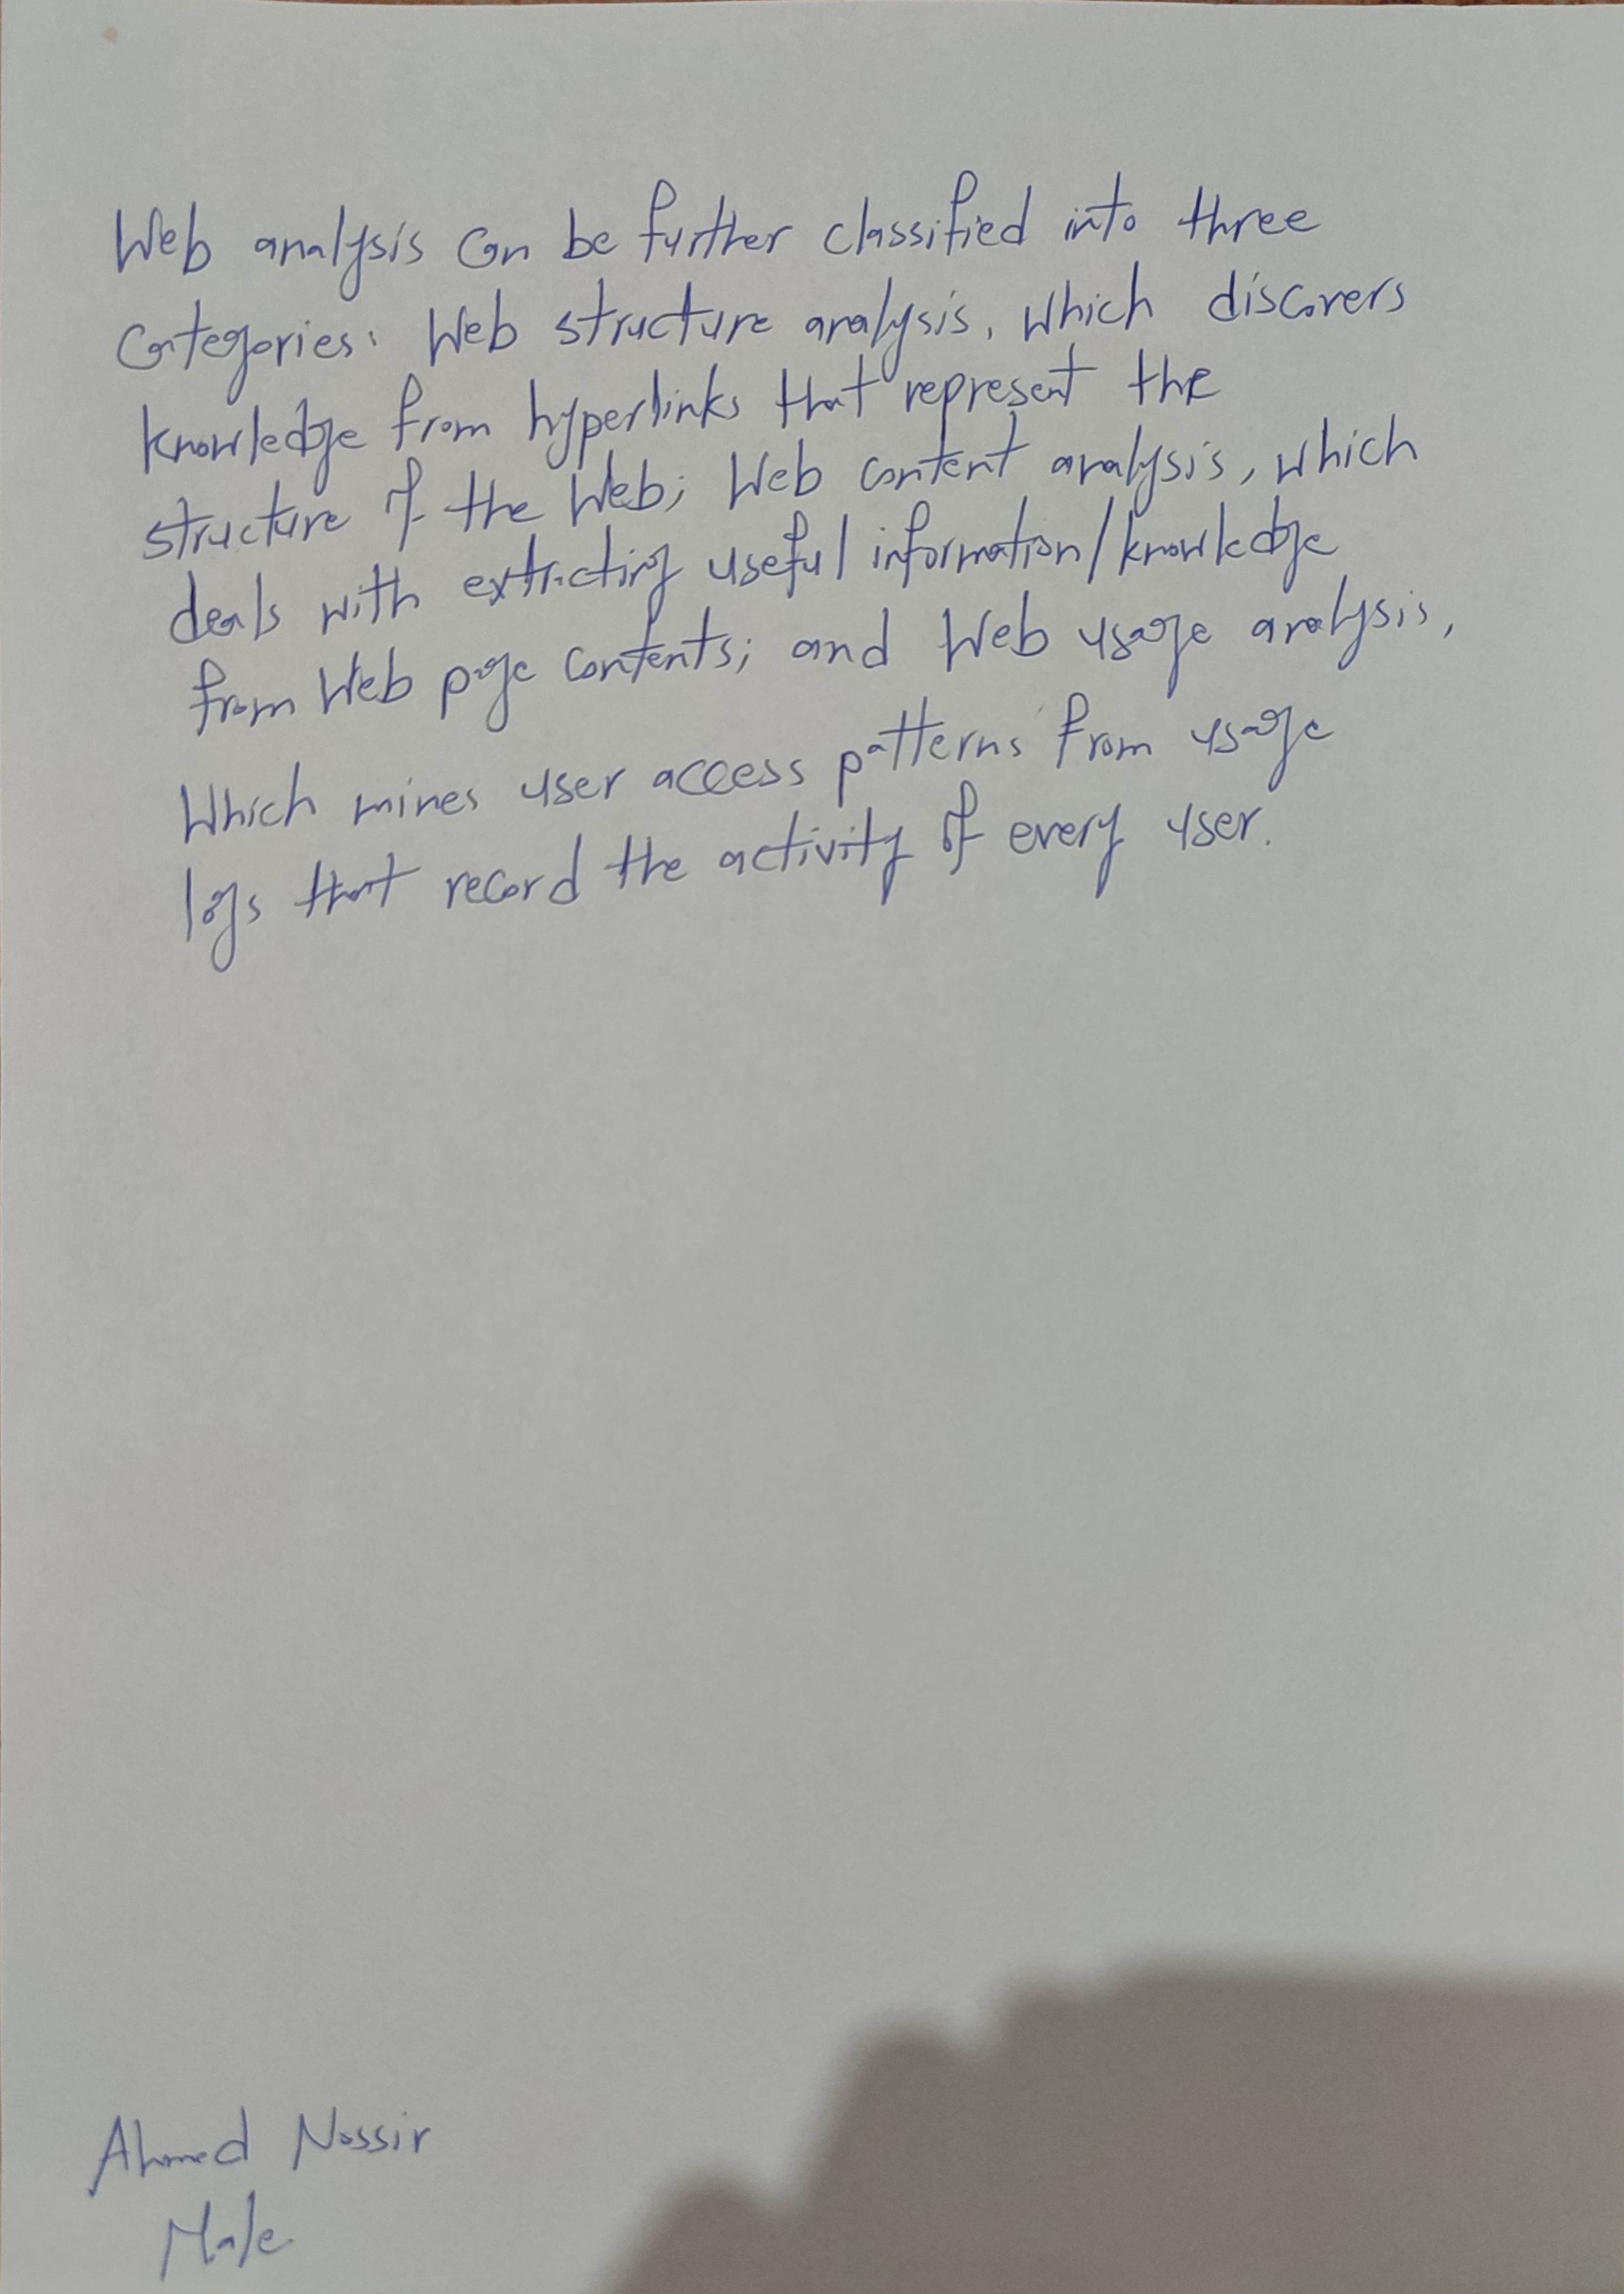 Web analysis can be further classified into three
categories: Web structure analysis, which discovers
knowledge from hyperlinks that represent the
structure of the Web; Web content analysis, which
deals with extracting useful information/knowledge
from Web page contents; and Web usage analysis,
Which mines user access patterns from usage
logs that record the activity of every user.
Ahmed Nossir
Male